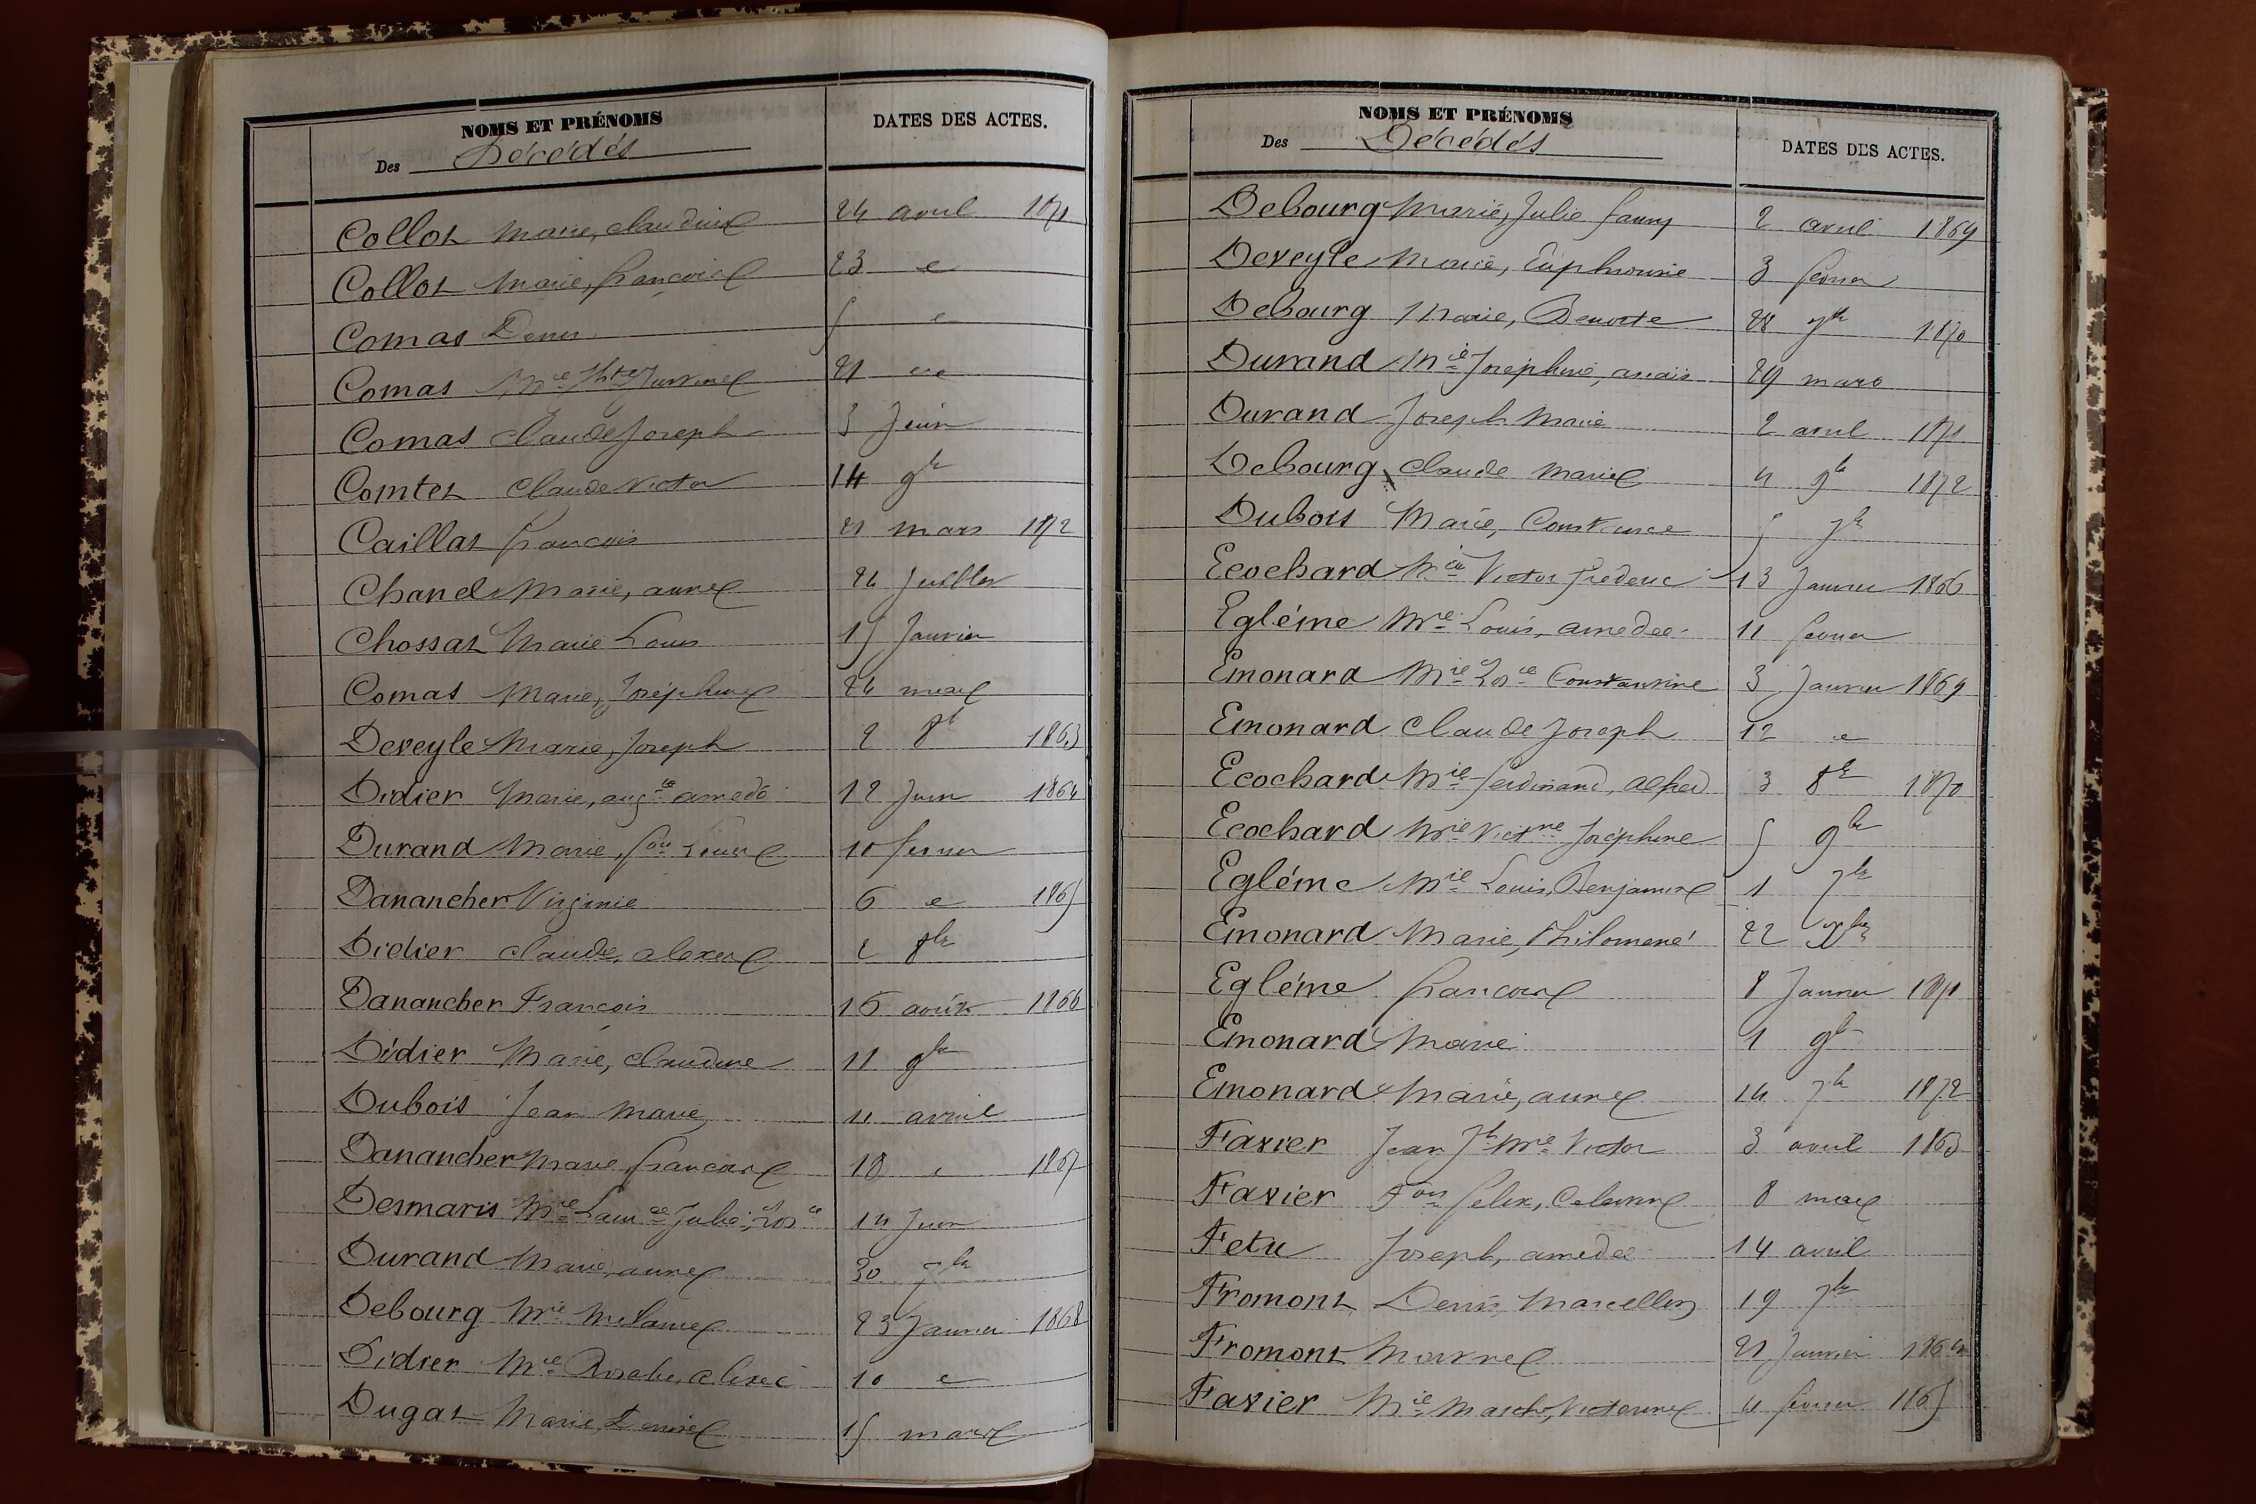 NOMS ET PRÉNOMS
DATES DES ACTES.
Des Décédés
Collot Marie, claudine 24 avril 1871
Collot Marie, françoise 23 e
Comas Denis 5 e
Comas Mie Justine 21 e
Comas Claude Joseph 3 Juin
Comtet Claude Victor 14 9bre
Caillat françois 21 mars 1872
Chanel Marie, anne 24 Juillet
Chossat Marie Louis 15 Janvier
Comas Marie, Joséphine 24 mai
Deveyle Marie, Joseph 2 8bre 1863
Didier Marie, augte amédé 12 Juin 1864
Durand Marie, foise Louise 10 fevrier
Danancher Virginie 6 e 1865
Didier claude, alexis 2 8bre
Danancher François 16 août 1866
Didier Marie, claudine 11 9bre
Dubois Jean Marie 11 avril
Danancher Marie françoise 18 " 1867
Desmaris Mie Julie 14 Juin
Durand Marie, anne 30 7bre
Debourg Mie Melanie 23 Janvier 1868
Didier Mie Rosalie, alexie 10 e
Dugat Marie, Denise 15 mars
NOMS ET PRÉNOMS
DATES DES ACTES.
Des Décédés
Debourg Marie, Julie fanny 2 avril 1869
Deveyle Marie, Euphrosine 3 fevrier
Debourg Marie, Benoite 28 7bre 1870
Durand Mie Josephine, anaïs 29 mars
Durand Joseph Marie 2 avril 1871
Debourg Claude Marie 4 9bre 1872
Dubois Marie, Constance 5 7bre
Ecochard Mie Victor frederic 13 Janvier 1866
Egléme Mie Louis, amedee 11 fevrier
Emonard Mie Constantine 3 Janvier 1869
Emonard Claude Joseph 12 e
Ecochard Mie ferdinand, alfred 3 8bre 1870
Ecochard Mie Victne Joséphine 5 9bre
Egléme Mie Louis, Benjamin 1 7bre
Emonard Marie, Philomene 22 Xbre
Egléme françoise 8 Janvier 1871
Emonard Marie 1 9bre
Emonard Marie, anne 14 7bre 1872
Favier Jean Jh Mie Victor 3 avril 1863
Favier Fois felix, Celestin 8 mai
Fetu Joseph, amedee 14 avril
Fromont Denis, Marcellin 19 7bre
Fromont 21 Janvier 1864
Favier Mie Marthe, Victorine 4 fevrier 1865